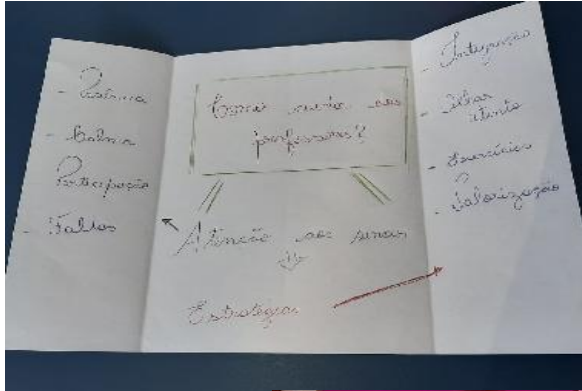 - Calma
Participação
- Faltas
Como cuidar dos
professores?
Atenção aos sinais
Estratégias
- Integração
- Olhar
atento
- Exercícios
- Valorização